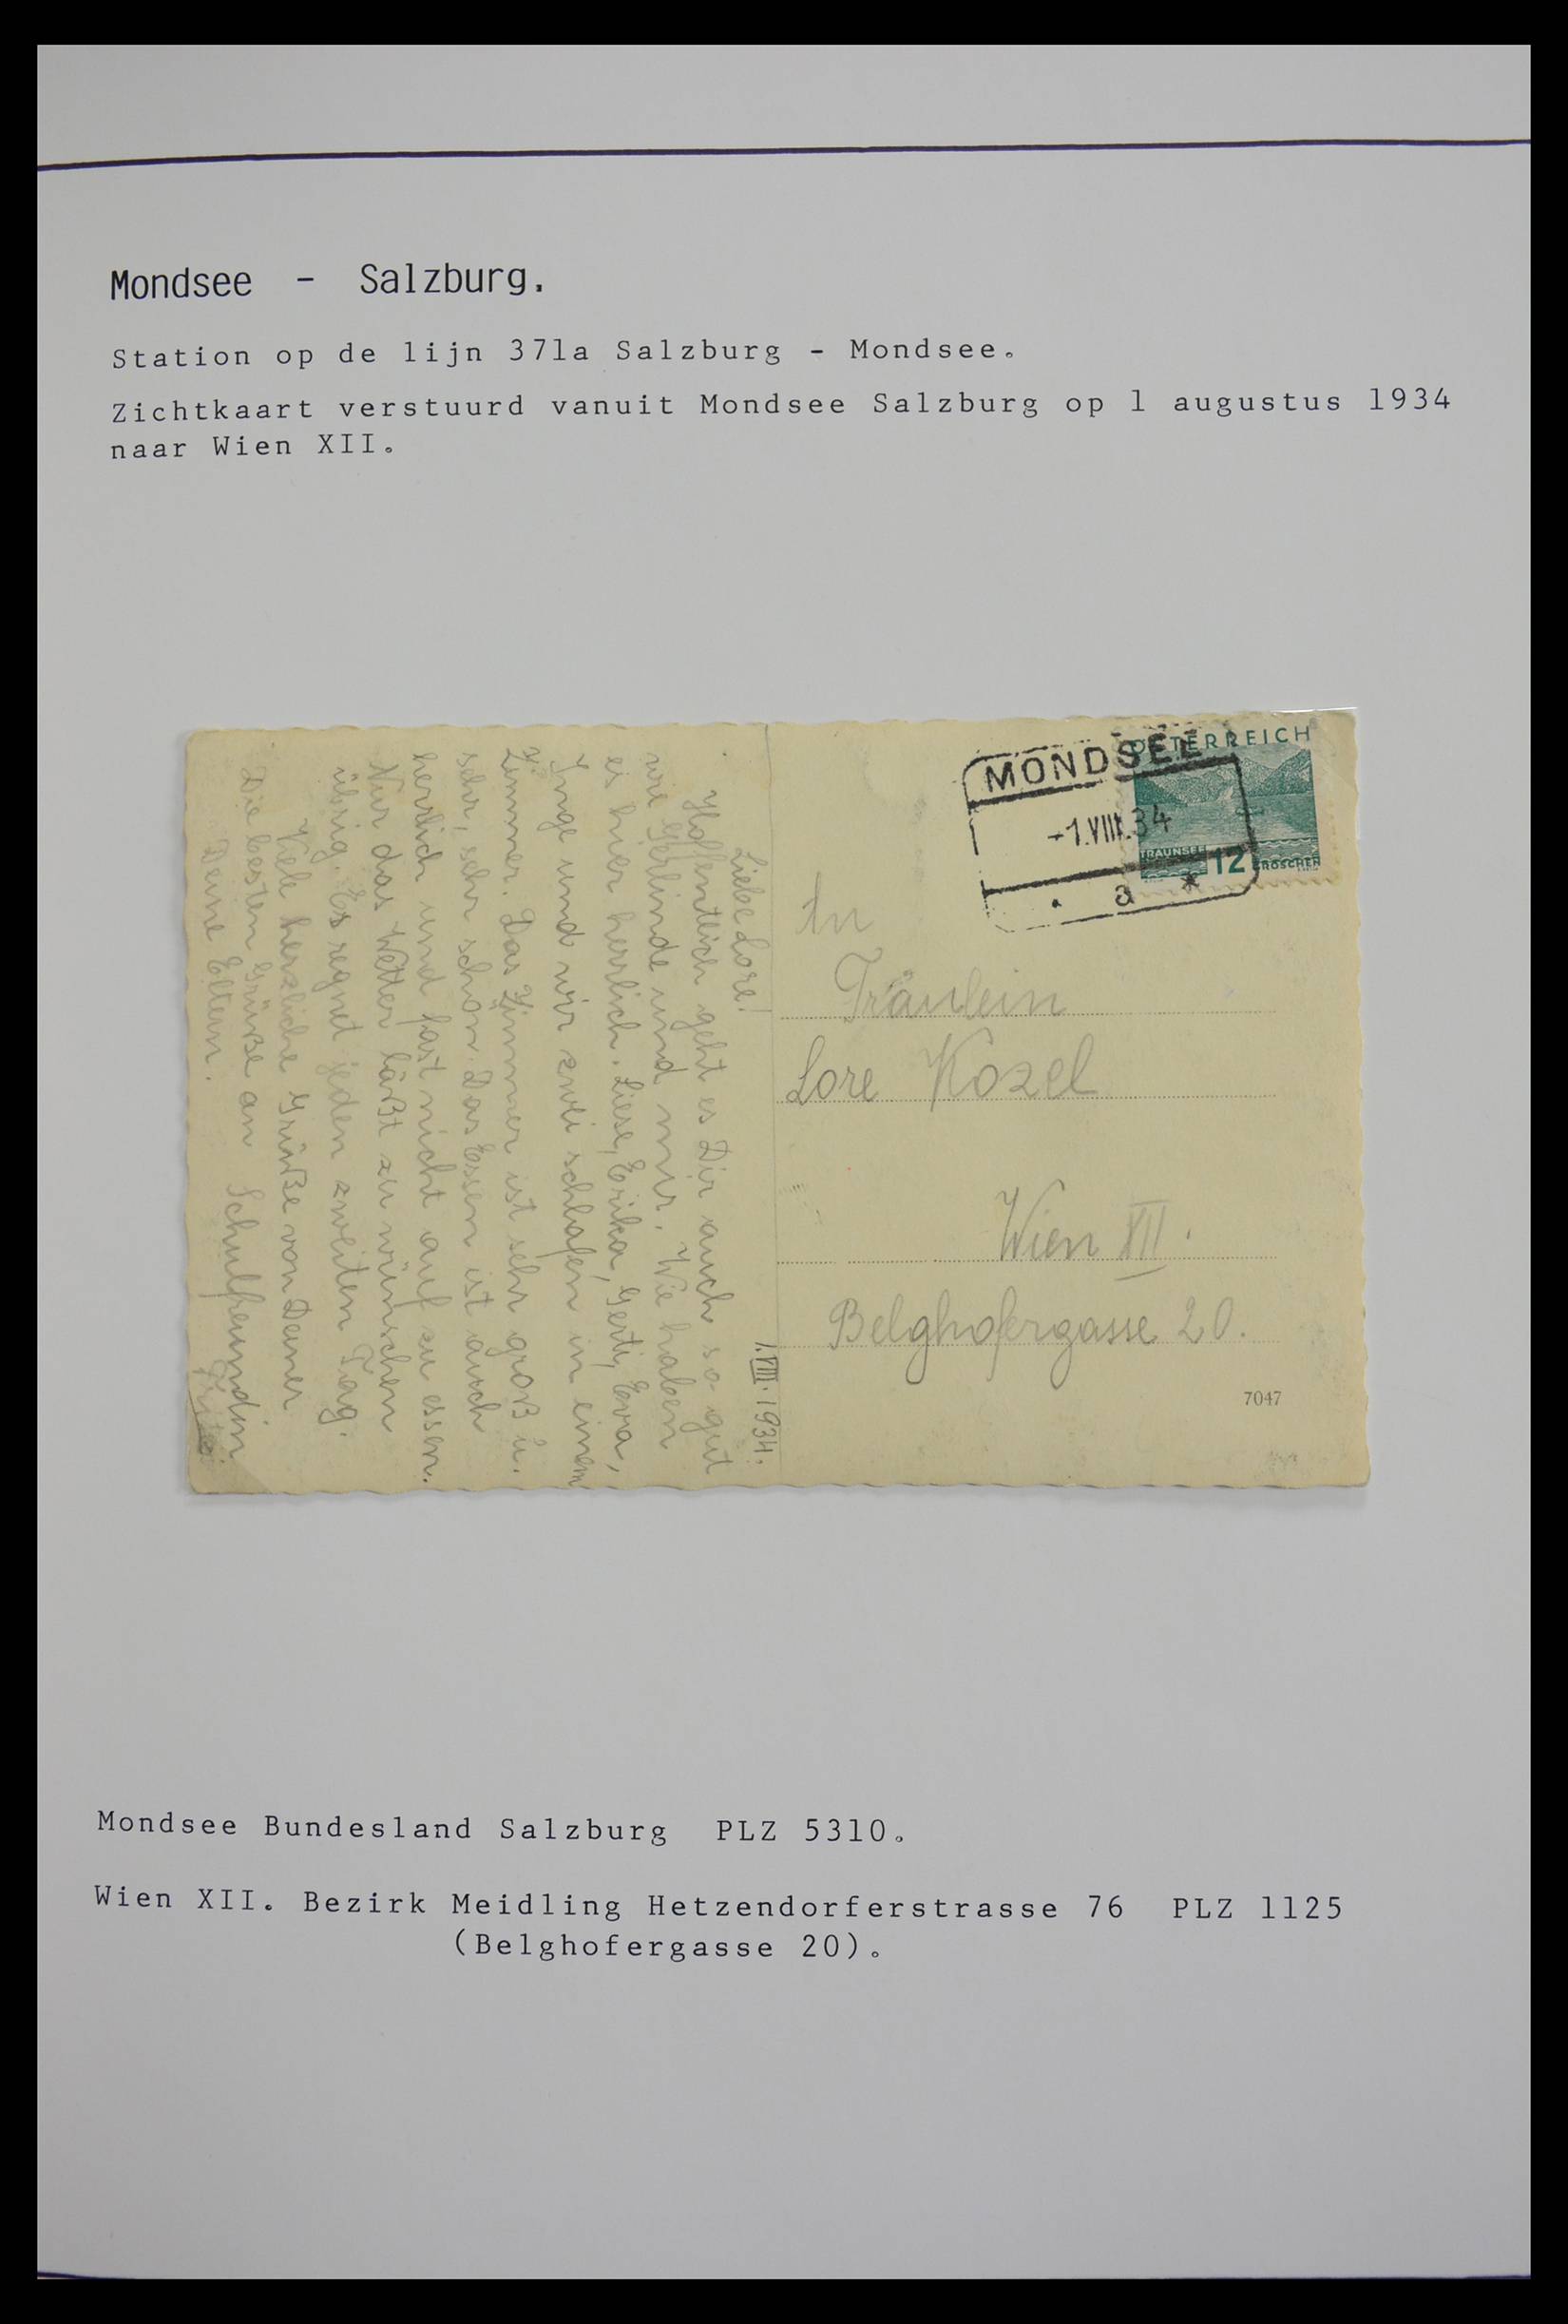 Mondsee - Salzburg.
Station op de lijn 371a Salzburg - Mondsee.
Zichtkaart verstuurd vanuit Mondsee Salzburg op 1 augustus 1934
naar Wien XII.
ÖSTERREICH
TRAUNSEE 12 GROSCHEN
MONDSEE
-1.VIII.34
a *
An
Fräulein
Lore Kozel
Wien XII.
Belghofergasse 20.
7047
1.VIII.1934.
Liebe Lore!
Hoffentlich geht es Dir auch so gut
wie Gerlinde und mir. Wie haben
es hier herrlich. Liese, Erika, Gerti, Eva,
Inge und wir zwei schlafen in einem
Zimmer. Das Zimmer ist sehr groß u.
sehr, sehr schön. Das Essen ist auch
herrlich und fast nicht auf zu essen.
Nur das Wetter läßt zu wünschen
übrig. Es regnet jeden zweiten Tag.
Viele herzliche Grüße von Deiner
Schulfreundin
Die besten Grüße an
Deine Eltern.
Mondsee Bundesland Salzburg PLZ 5310.
Wien XII. Bezirk Meidling Hetzendorferstrasse 76 PLZ 1125
(Belghofergasse 20).